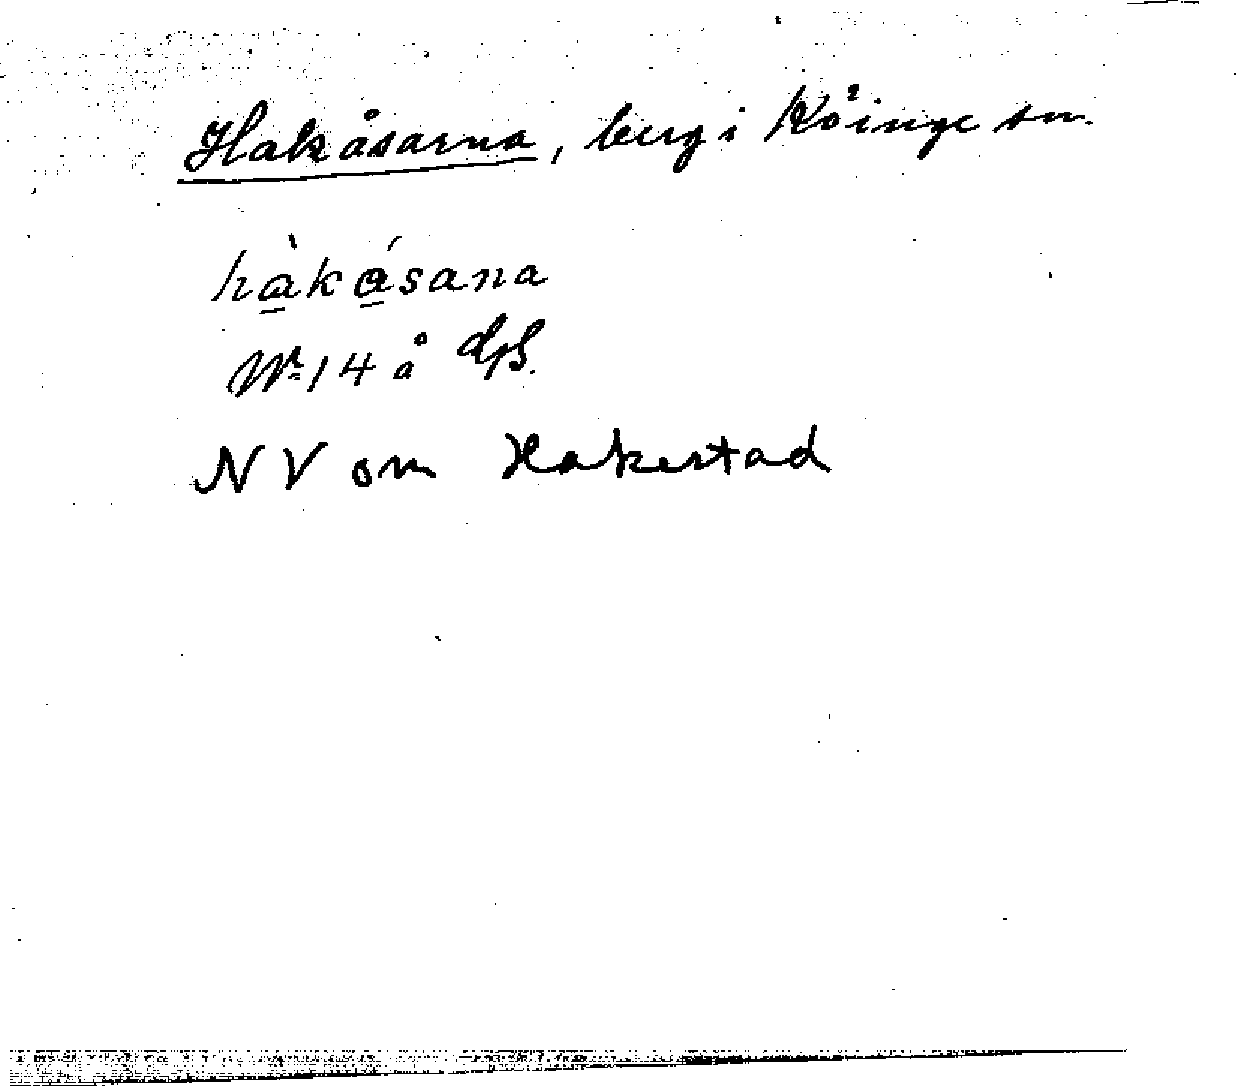 Hakåsarna, berg i Köinge sn.
hàkásana
Nr 14 å
NV om Hakestad